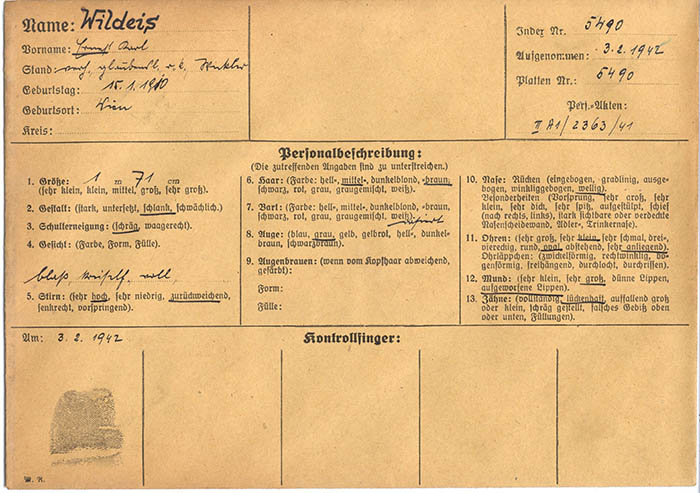 Name: Wildeis
Vorname: Ernst Karl
Stand: verh., glaubensl. r. k.,
Geburtstag: 15.1.1910
Geburtsort: Wien
Kreis:
Index Nr. 5490
Aufgenommen: 3.2.1942
Platten Nr.: 5490
Pers.-Akten:
II A1/2363/41
Personalbeschreibung:
(Die zutreffenden Angaben sind zu unterstreichen.)
1. Größe: 1 m 71 cm
(sehr klein, klein, mittel, groß, sehr groß).
2. Gestalt: (stark, untersetzt, schlank, schwächlich.)
3. Schulterneigung: (schräg, waagerecht).
4. Gesicht: (Farbe, Form, Fülle).
blaß, voll
5. Stirn: (sehr hoch, sehr niedrig, zurückweichend,
senkrecht, vorspringend).
6. Haar: (Farbe: hell-, mittel-, dunkelblond, -braun,
schwarz, rot, grau, graugemischt, weiß).
7. Bart: (Farbe: hell-, mittel-, dunkelblond, -braun,
schwarz, rot, grau, graugemischt, weiß).
rasiert
8. Auge: (blau, grau, gelb, gelbrot, hell-, dunkel-
braun, schwarzbraun).
9. Augenbrauen: (wenn vom Kopfhaar abweichend,
gefärbt):
Form:
Fülle:
10. Nase: Rücken (eingebogen, gradlinig, ausge-
bogen, winkliggebogen, wellig).
Besonderheiten (Vorsprung, sehr groß, sehr
klein, sehr dick, sehr spitz, aufgestülpt, schief
(nach rechts, links), stark sichtbare oder verdeckte
Nasenscheidewand, Adler-, Trinkernase).
11. Ohren: (sehr groß, sehr klein, sehr schmal, drei-,
viereckig, rund, oval, abstehend, sehr anliegend).
Ohrläppchen: (zwickelförmig, rechtwinklig, bo-
genförmig, freihängend, durchlocht, durchrissen).
12. Mund: (sehr klein, sehr groß, dünne Lippen,
aufgeworfene Lippen).
13. Zähne: (vollständig, lückenhaft, auffallend groß
oder klein, schräg gestellt, falsches Gebiß oben
oder unten, Füllungen).
Am: 3.2.1942
Kontrollfinger:
W. K.